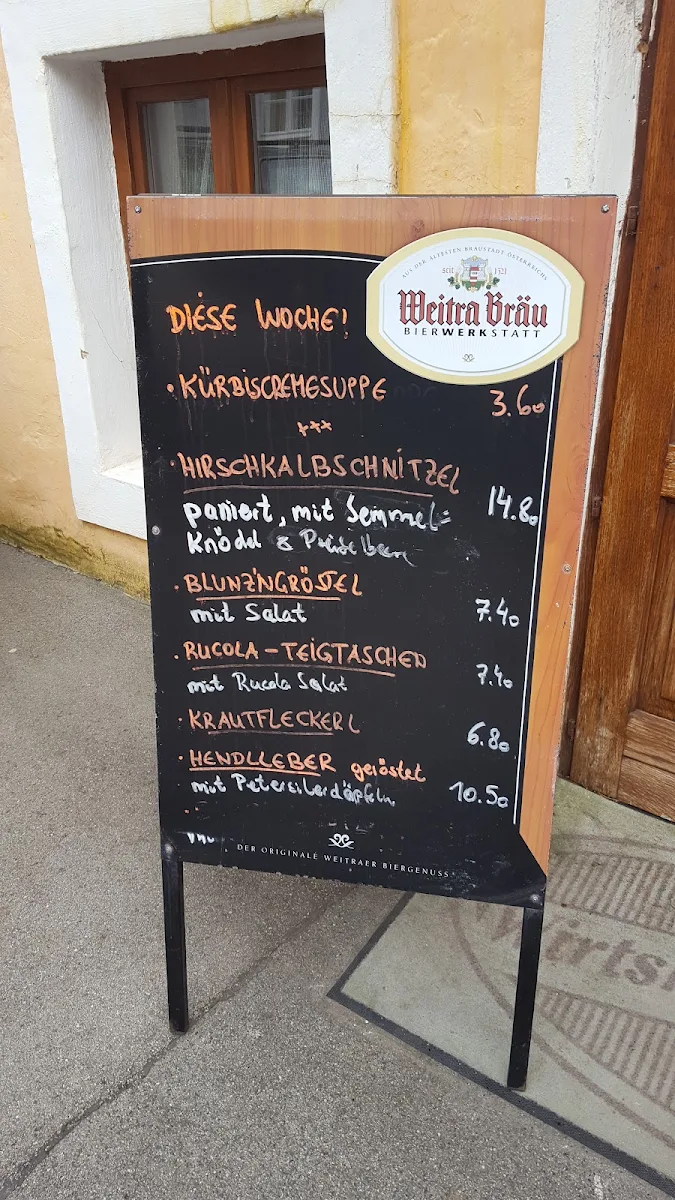 AUS DER ÄLTESTEN BRAUSTADT ÖSTERREICHS
seit 1321
Weitra Bräu
BIERWERKSTATT
DIESE WOCHE!
• KÜRBISCREMESUPPE 3.60
***
• HIRSCHKALBSCHNITZEL
paniert, mit Semmel= 14.80
Knödel & Preiselbeer
• BLUNZ'NGRÖSTEL
mit Salat 7.40
• RUCOLA-TEIGTASCHEN
mit Rucola Salat 7.40
• KRAUTFLECKERL 6.80
• HENDLLEBER geröstet
mit Petersilerdäpfeln 10.50
DER ORIGINALE WEITRAER BIERGENUSS
Wirts